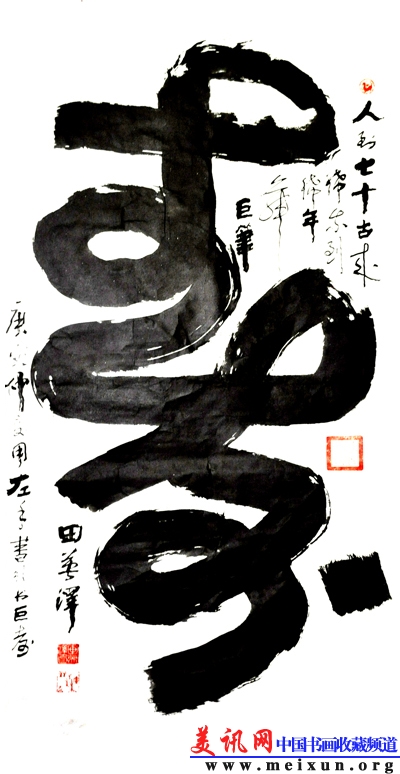 人到七十古来
稀年
巨筆
壽
庚寅仲夏用左手書
田英澤
美讯网中国书画收藏频道
www.meixun.org